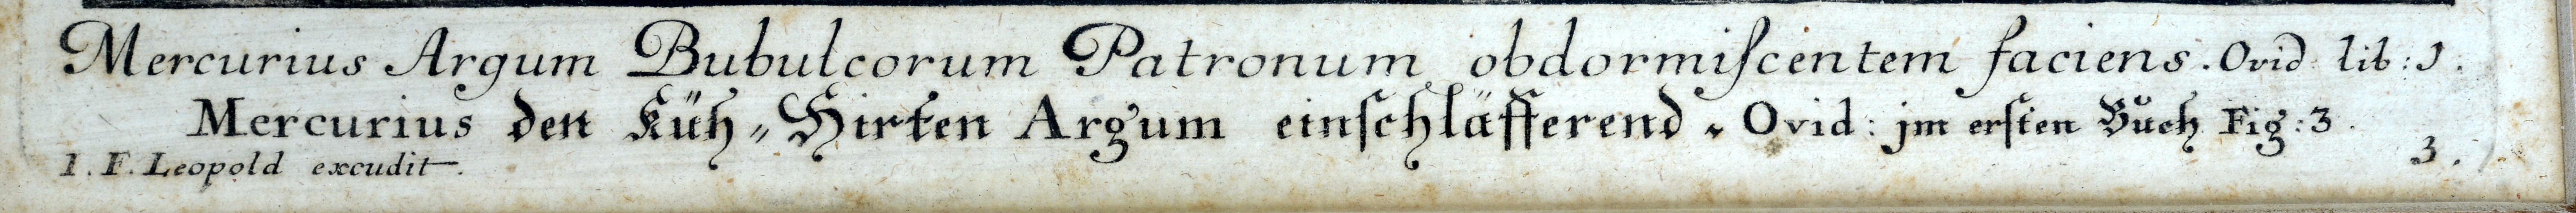 Mercurius Argum Bubulcorum Patronum obdormiſcentem faciens. Ovid lib: I.
Mercurius den Küh-Hirten Argum einſchläfferend. Ovid: jm erſten Bůch Fig: 3.
I. F. Leopold excudit. 3.